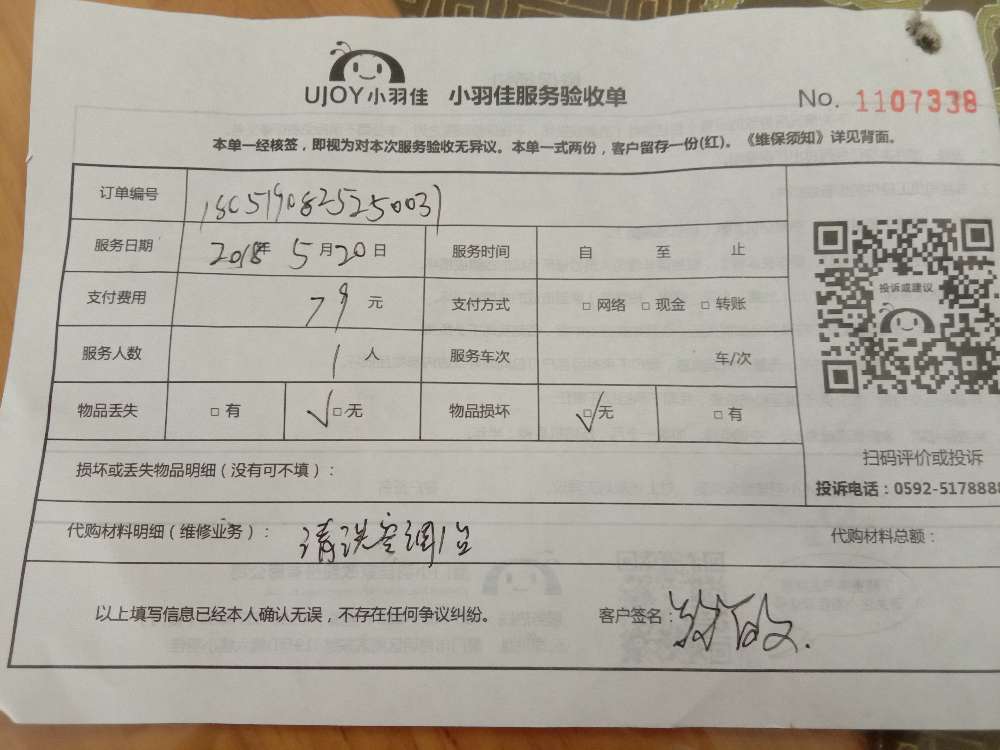 UJOY小羽佳 小羽佳服务验收单 No. 1107338
本单一经核签，即视为对本次服务验收无异议。本单一式两份，客户留存一份(红)。《维保须知》详见背面。
订单编号 180519082525003
服务日期 2018年 5月20日 服务时间 自 至 止
支付费用 79元 支付方式 □网络 □现金 □转账
服务人数 1人 服务车次 车/次
物品丢失 □有 ✓□无 物品损坏 ✓□无 □有
投诉或建议
扫码评价或投诉
投诉电话：0592-5178888
损坏或丢失物品明细（没有可不填）：
代购材料明细（维修业务）： 清洗空调1台 代购材料总额：
以上填写信息已经本人确认无误，不存在任何争议纠纷。 客户签名：